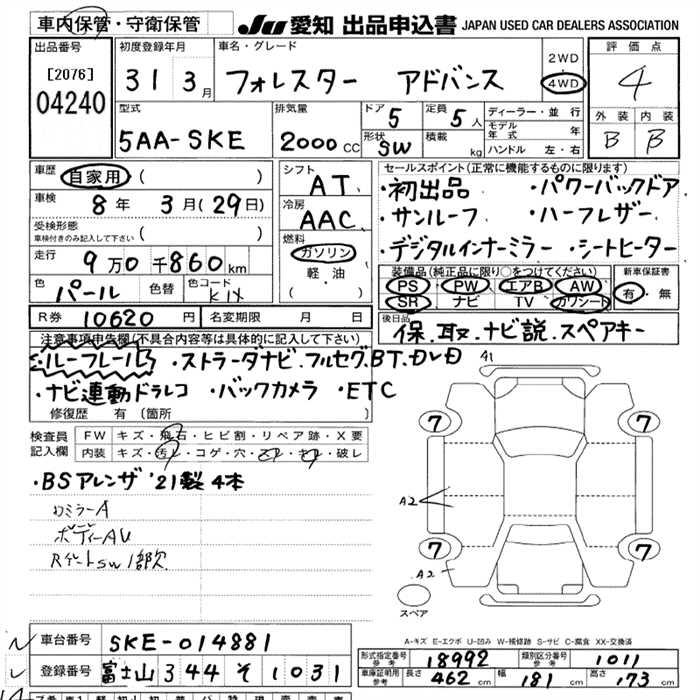 車内保管・守衛保管 JU 愛知 出品申込書 JAPAN USED CAR DEALERS ASSOCIATION
出品番号 初度登録年月 車名・グレード 2WD 評価点
[2076] 31 3月 フォレスター アドバンス 4WD 4
04240 型式 排気量 ドア 5 定員 5人 ディーラー・並行 外装 内装
5AA-SKE 2000CC 形状 SW 積載 kg モデル年式 年 B B
ハンドル 左・右
車歴 自家用 ( ) シフト AT セールスポイント(正常に機能するものに限ります)
車検 8年 3月(29日) 冷房 AAC ・初出品 ・パワーバックドア
受検形態 ( ) ・サンルーフ ・ハーフレザー
車検付きのみ記入して下さい 燃料 ガソリン ・デジタルインナーミラー ・シートヒーター
走行 9万0千860km 軽油 装備品(純正品に限り〇をつけてください) 新車保証書
色 パール 色替 色コード K1X ( ) PS PW エアB AW 有・無
SR ナビ TV カワシート
R券 10620円 名変期限 月 日 後日品 保.取.ナビ説.スペアキー
注意事項申告欄(不具合内容等は具体的に記入して下さい)
・ルーフレール ・ストラーダナビ.フルセグ.BT.DVD 41
・ナビ連動ドラレコ ・バックカメラ ・ETC
修復歴 有(箇所 7 7
検査員 FW キズ・飛石・ヒビ割・リペア跡・X要
記入欄 内装 キズ・汚レ・コゲ・穴・スレ・キレ・破レ
・BSアレンザ '21製 4本 A2
ロミラーA
ボディーAU 7 7
RゲートSW1部欠 A2
スペア
A-キズ E-エクボ U-凹み W-補修跡 S-サビ C-腐食 XX-交換済
車台番号 SKE-014881 形式指定番号 参考 18992 類別区分番号 参考 1011
登録番号 富士山344そ1031 車庫証明用 参考 長さ 462cm 幅 181cm 高さ 173cm